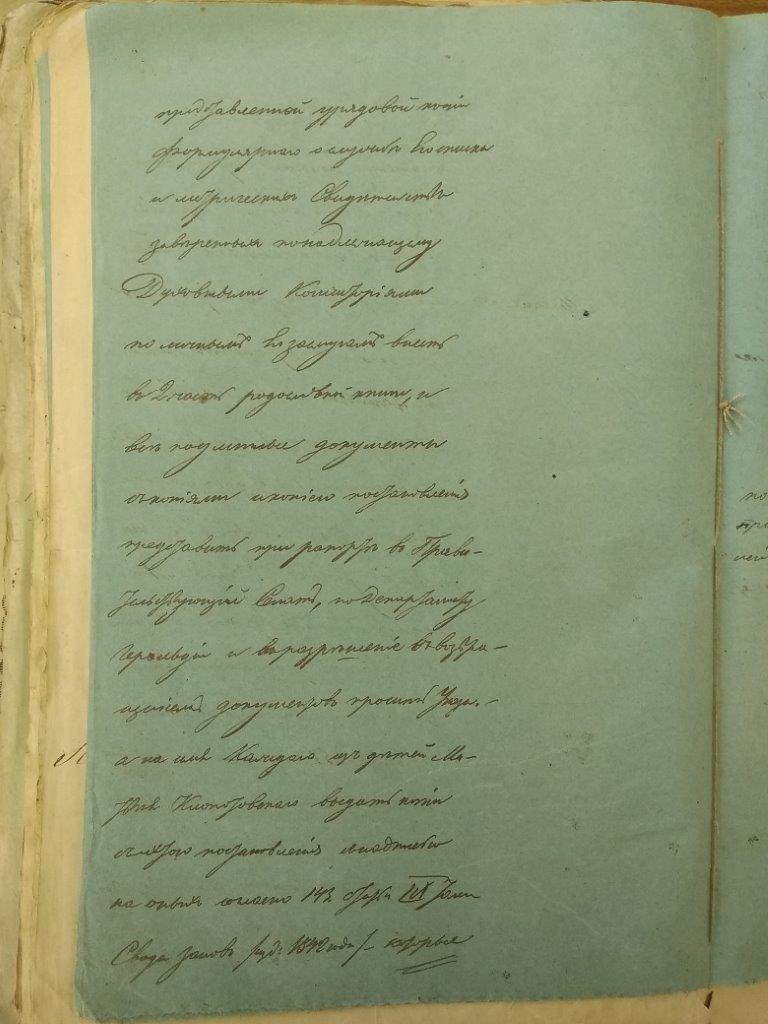 представленной урядовой копіи
формулярнаго о службѣ Его списка
и метрическихъ Свидѣтельствъ
завѣренныхъ понадлежащему
Духовными Консисторіями
по личнымъ Его заслугамъ внесть
во 2 часть родословной книги, и
всѣ подлинные документы
съ копіями и копіею постановленія
представить при рапортѣ въ Прави-
тельствующій Сенатъ, по Департаменту
Герольдіи и въ разрѣшеніе въ возвра-
щеніемъ документовъ просить Указа. -
а на имя Каждаго изъ дѣтей Ма-
твѣя Клопотовскаго выдать копіи
съ сего постановленія
на оныхъ согласно 142 статьи IX Тома
Свода законовъ /изд: 1842 года/ - которые